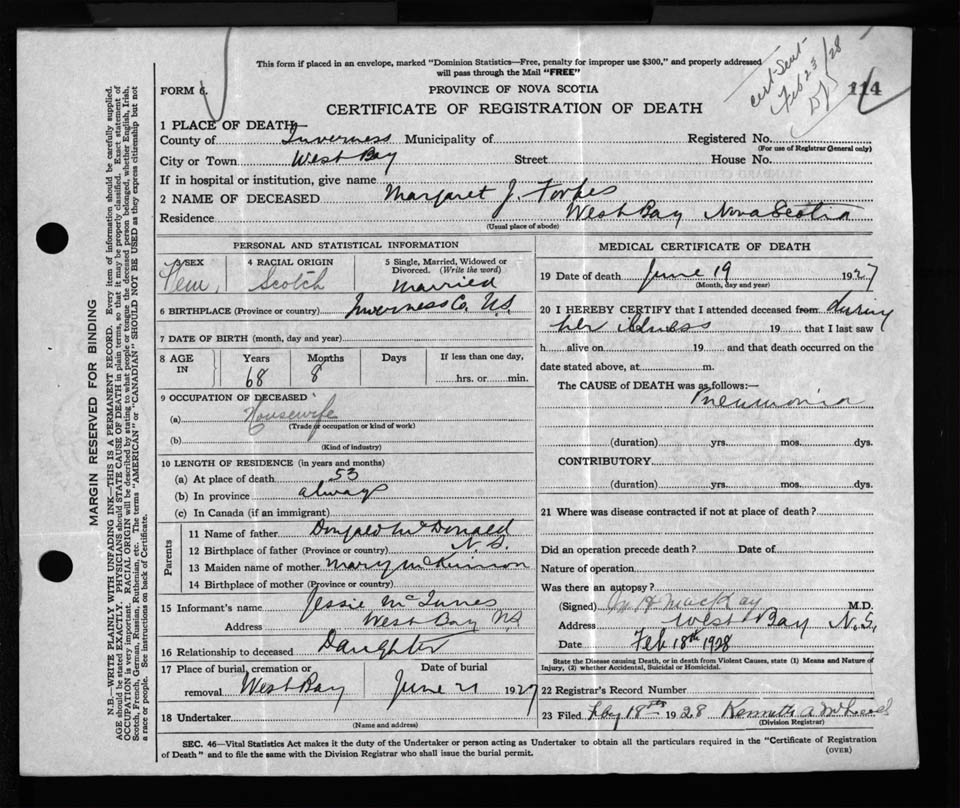 This form if placed in an envelope, marked "Dominion Statistics—Free, penalty for improper use $300," and properly addressed
will pass through the Mail "FREE"
cert. Sent
Feb 23/28
FORM 6.
PROVINCE OF NOVA SCOTIA
114
CERTIFICATE OF REGISTRATION OF DEATH
1 PLACE OF DEATH—
County of Inverness Municipality of Registered No.
(For use of Registrar General only)
City or Town West Bay Street House No.
If in hospital or institution, give name
2 NAME OF DECEASED Margaret J. Forbes
Residence West Bay Nova Scotia
(Usual place of abode)
PERSONAL AND STATISTICAL INFORMATION
3 SEX 4 RACIAL ORIGIN 5 Single, Married, Widowed or
Divorced. (Write the word)
Fem, Scotch Married
6 BIRTHPLACE (Province or country) Inverness Co. N.S.
7 DATE OF BIRTH (month, day and year)
8 AGE IN Years Months Days If less than one day,
68 8 hrs. or min.
9 OCCUPATION OF DECEASED
(a) Housewife
(Trade or occupation or kind of work)
(b)
(Kind of industry)
10 LENGTH OF RESIDENCE (in years and months)
(a) At place of death 53
(b) In province always
(c) In Canada (if an immigrant)
Parents
11 Name of father Donald McDonald
12 Birthplace of father (Province or country) N.S.
13 Maiden name of mother Mary McKinnon
14 Birthplace of mother (Province or country)
15 Informant's name Jessie McInnes
Address West Bay NS
16 Relationship to deceased Daughter
17 Place of burial, cremation or Date of burial
removal West Bay June 21 1927
18 Undertaker
(Name and address)
MEDICAL CERTIFICATE OF DEATH
19 Date of death June 19 1927
(Month, day and year)
20 I HEREBY CERTIFY that I attended deceased from during
her illness 19 that I last saw
h alive on 19 and that death occurred on the
date stated above, at m.
The CAUSE of DEATH was as follows:—
Pneumonia
(duration) yrs. mos. dys.
CONTRIBUTORY
(duration) yrs. mos. dys.
21 Where was disease contracted if not at place of death?
Did an operation precede death? Date of
Nature of operation
Was there an autopsy?
(Signed) MacKay M.D.
Address West Bay N.S.
Date Feb 18th 1928
State the Disease causing Death, or in death from Violent Causes, state (1) Means and Nature of
Injury, (2) whether Accidental, Suicidal or Homicidal.
22 Registrar's Record Number
23 Filed 18th 1928 Kenneth A.
(Division Registrar)
SEC. 46—Vital Statistics Act makes it the duty of the Undertaker or person acting as Undertaker to obtain all the particulars required in the "Certificate of Registration
of Death" and to file the same with the Division Registrar who shall issue the burial permit.
(OVER)
MARGIN RESERVED FOR BINDING
N.B.—WRITE PLAINLY WITH UNFADING INK—THIS IS A PERMANENT RECORD. Every item of information should be carefully supplied.
AGE should be stated EXACTLY. PHYSICIANS should STATE CAUSE OF DEATH in plain terms, so that it may be properly classified. Exact statement of
OCCUPATION is very important. RACIAL ORIGIN will be described by stating to what people or tongue the deceased person belonged, whether English, Irish,
Scotch, French, German, Russian, Ruthenian, etc. The terms "AMERICAN" or "CANADIAN" SHOULD NOT BE USED as they express citizenship but not
a race or people. See instructions on back of Certificate.